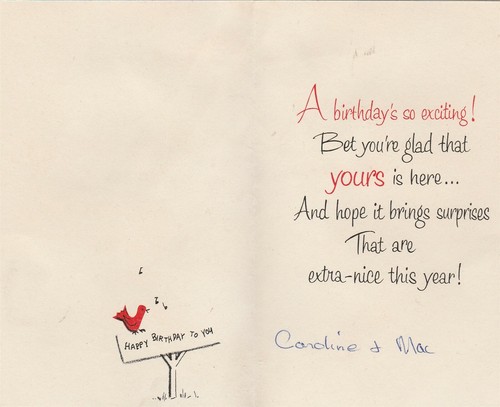 A birthday's so exciting!
Bet you're glad that
yours is here...
And hope it brings surprises
That are
extra-nice this year!
HAPPY BIRTHDAY TO YOU
Caroline + Mac